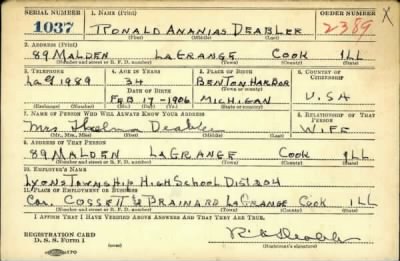 SERIAL NUMBER 1. NAME (Print) ORDER NUMBER
1037 RONALD ANANIAS DEABLER 2389 X
(First) (Middle) (Last)
2. ADDRESS (Print)
89 MALDEN LAGRANGE COOK ILL
(Number and street or R. F. D. number) (Town) (County) (State)
3. TELEPHONE 4. AGE IN YEARS 5. PLACE OF BIRTH 6. COUNTRY OF CITIZENSHIP
LaG 1989 34 BENTON HARBOR
DATE OF BIRTH (Town or county)
FEB 17-1906 MICHIGAN USA
(Exchange) (Number) (Mo.) (Day) (Yr.) (State or country)
7. NAME OF PERSON WHO WILL ALWAYS KNOW YOUR ADDRESS 8. RELATIONSHIP OF THAT PERSON
Mrs. Thelma Deabler WIFE
(Mr., Mrs., Miss) (First) (Middle) (Last)
9. ADDRESS OF THAT PERSON
89 MALDEN LAGRANGE COOK ILL
(Number and street or R. F. D. number) (Town) (County) (State)
10. EMPLOYER'S NAME
LYONS TOWNSHIP HIGH SCHOOL DIST 204
11. PLACE OF EMPLOYMENT OR BUSINESS
Cor. COSSETT & BRAINARD LAGRANGE COOK ILL
(Number and street or R. F. D. number) (Town) (County) (State)
I AFFIRM THAT I HAVE VERIFIED ABOVE ANSWERS AND THAT THEY ARE TRUE.
REGISTRATION CARD
D. S. S. Form 1
(Registrant's signature)